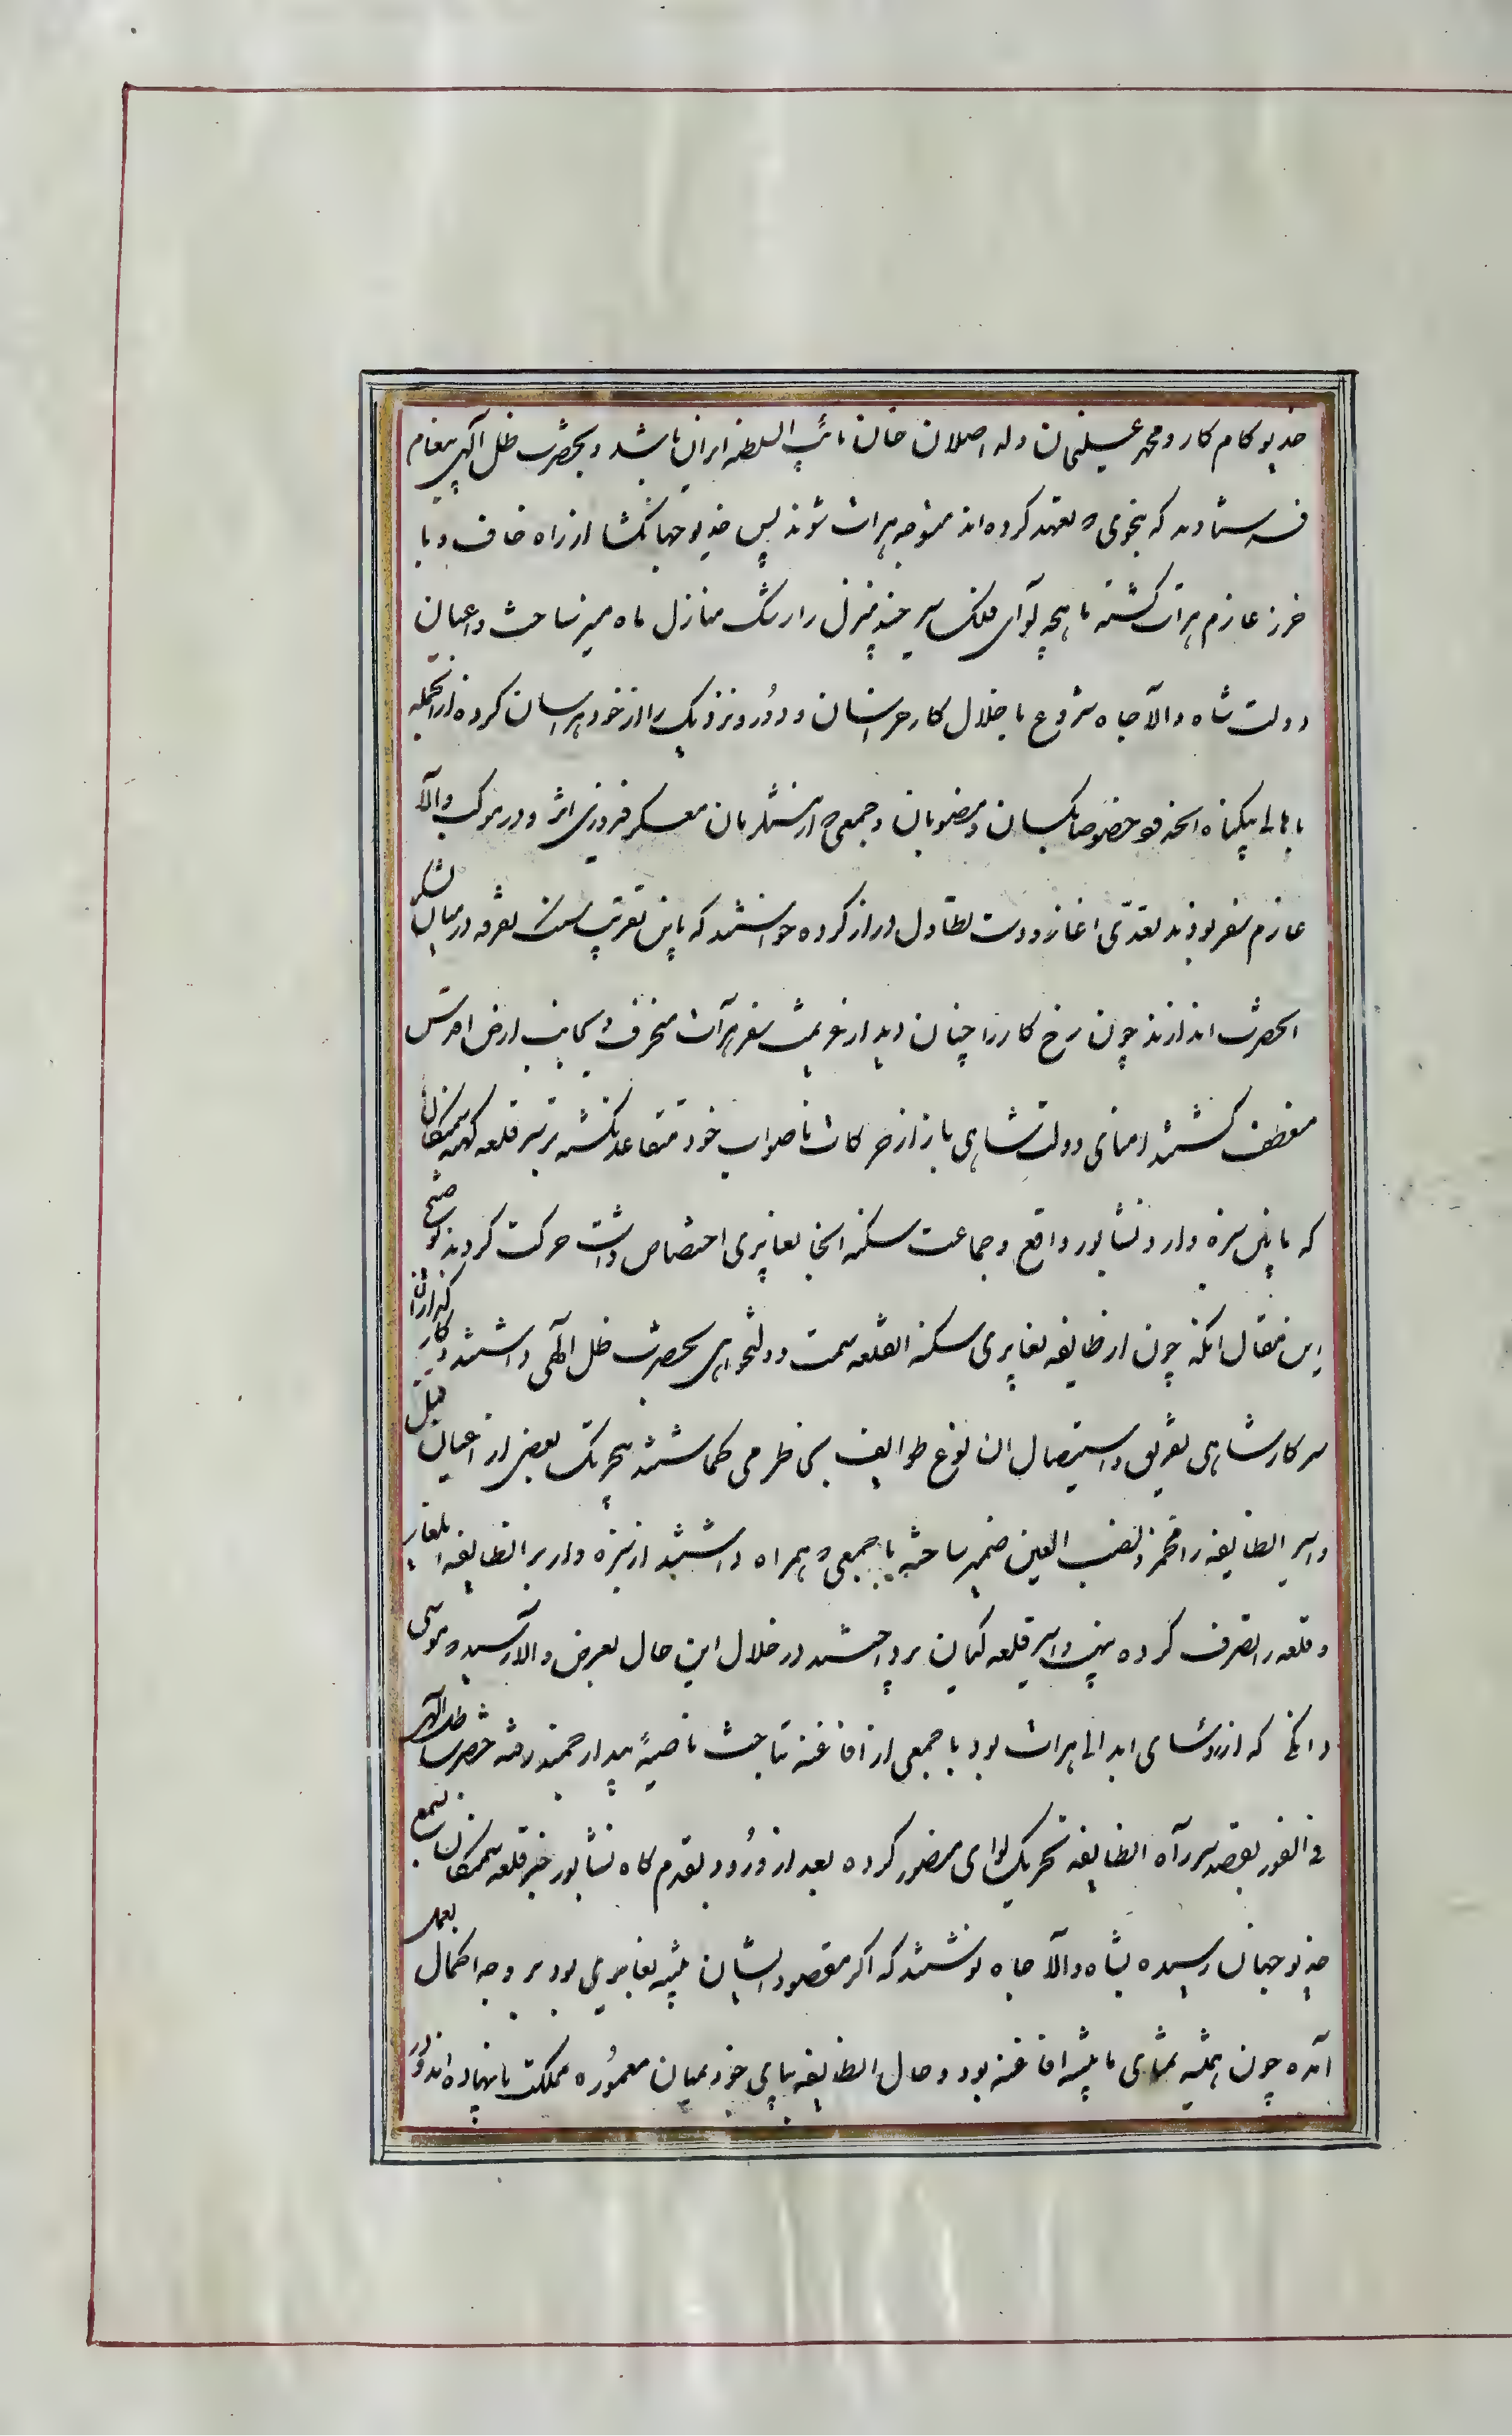 خدیو کامکار و محمد علیخان ولد اصلان خان نایب السلطنه ایران باشد و بحضرت ظل آلهی پیغام
فرستادند که بنحوی که تعهد کرده اند متوجه هرات شوند پس خدیو جهانکشا از راه خاف و با
خرز عازم هرات کشته ماهچه لوآی فلک سیر چند منزل را رشک منازل ماه منیر ساخت و اعیان
دولت شاه والاجاه شروع باخلال کار خراسان و دور و نزدیک را از خود هراسان کرده از آنجمله
باهالی بیکناه انحدود خصوصا بکسان و منسوبان و جمعی که از لشکریان معسکر فیروزی اثر و در موکب والا
عازم سفر بودند تعدی اغاز و دست تطاول دراز کرده خواستند که باین تقریب سنک تفرقه در میان لشکر
انحضرت اندازند چون نرخ کار را چنان دید از عزیمت سفر هرآت منحرف و بجانب ارض اقدس
منعطف کشتند امنای دولت شاهی باز از حرکات ناصواب خود متقاعد نکشته بر سر قلعه کهنه سمنکان
که مابین سبزه وار و نشابور واقع و جماعت سکنه انجا بغایری اختصاص داشت حرکت کردند توضیح
این مقال انکه چون از طایفه بغایری سکنه القلعه سمت دولتخواهی بحضرت ظل آلهی داشتند و کار کذاران
سرکار شاهی تفریق و استیصال ان نوع طوایف بخاطر می کماشتند بتحریک بعضی از اعیان قتل
و اسر الطایفه را مخمر و نصب العین ضمیر ساخته با جمعی که همراه داشتند از سبزه وار بر الطایفه ایلغار
و قلعه را تصرف کرده بنهب و اسر قلعه کیان پرداختند در خلال این حال بعرض والا رسید که موسی
دانکی که از رؤسای ابدالی هرات بود با جمعی از افاغنه بتاخت ناحیهٔ بیدارجمند رفته حضرت ظل آلهی
فی الفور بقصد سر راه الطایفه تحریک لوای منصور کرده بعد از ورود بقدمکاه نشابور خبر قلعه سمنکان بسمع
خدیو جهان رسیده بشاه والا جاه نوشتند که اکر مقصود ایشان تنبیه بغایری بود بر وجه اکمال بعمل
آمده چون همیشه تمنای ما تنبیه افاغنه بود و حال الطایفه بپای خود بمیان معموره مملکت پا نهاده اند در